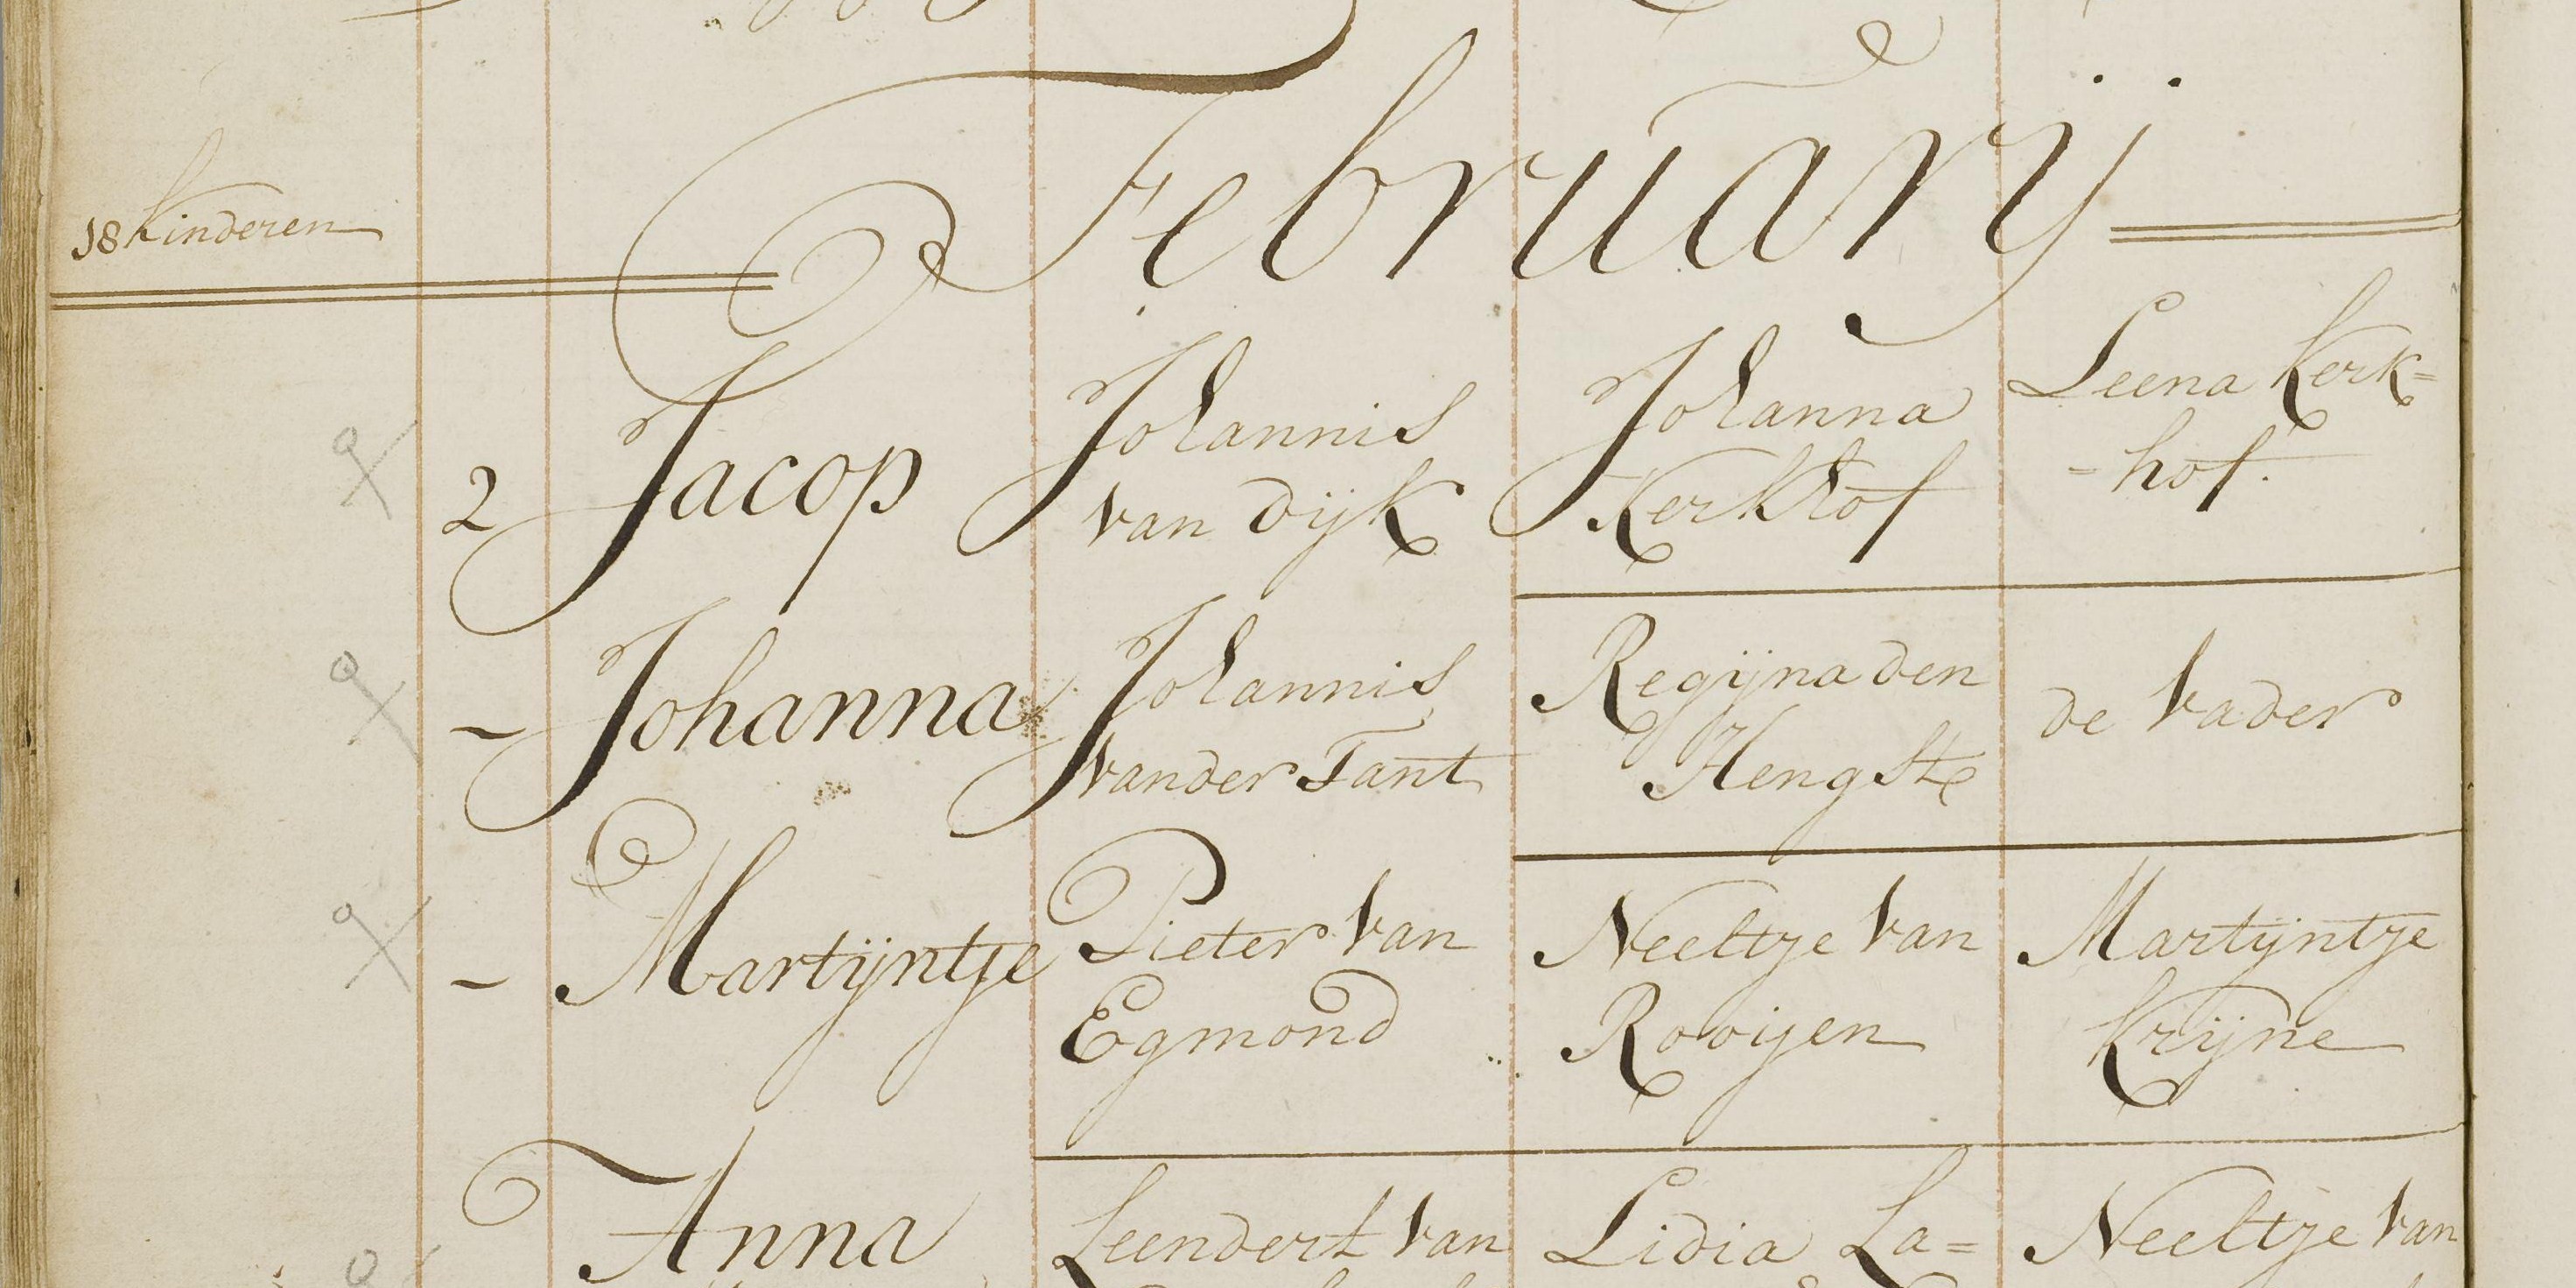 Februarÿ
18 Kinderen
2 Jacop
Johannis
van dijk
Johanna
Kerkhof
Leena Kerk=
=hof.
- Johanna
Johannis
vander Tant
Regijna den
Hengst
de vader
- Martijntje
Pieter van
Egmond
Neeltje van
Rooijen
Martijntje
Krijne
Anna
Leendert van
Lidia La=
Neeltje van